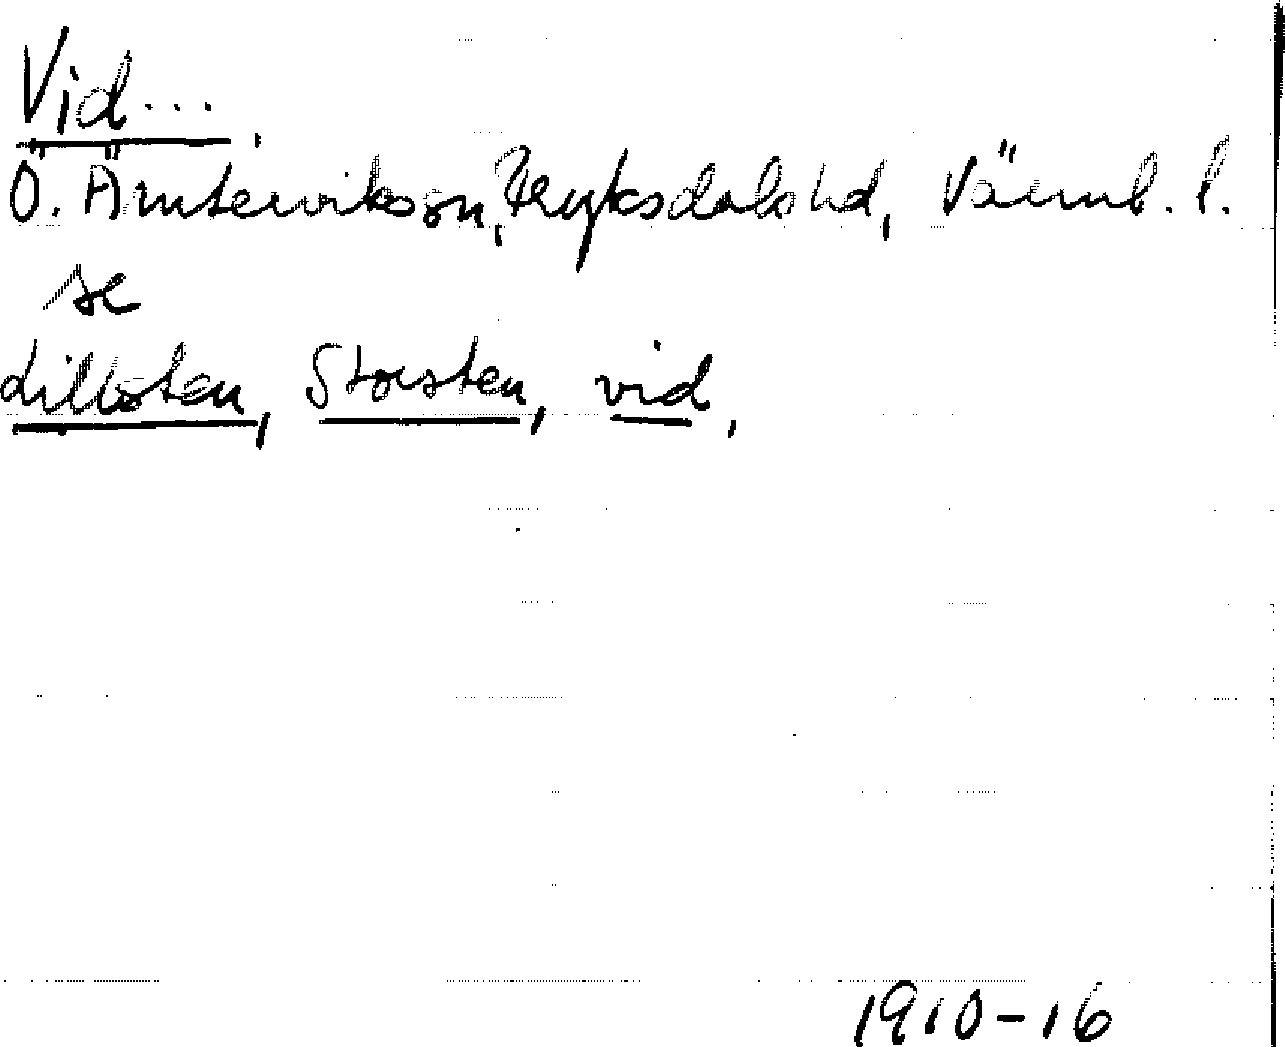 Vid...,
Ö. Ämterviks sn, Fryksdals hd, Värml. l.
se
Lillsten, Storsten, vid,
1910-16